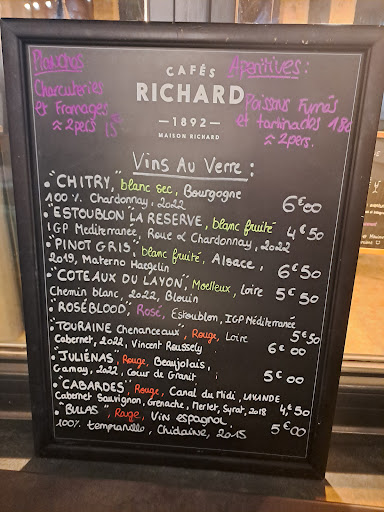 Planches
Charcuteries
et Fromages
≈ 2pers 15€
CAFÉS
RICHARD
—1892—
MAISON RICHARD
Apéritives :
Poissons Fumés
et tartinades 18€
≈ 2pers.
Vins Au Verre :
• "CHITRY," blanc sec, Bourgogne
100 % Chardonnay, 2022 6€00
• "ESTOUBLON LA RESERVE, blanc fruité
IGP Mediterranée, & Chardonnay, 2022 4€50
• "PINOT GRIS", blanc fruité. Alsace,
2019, Materno Haegelin 6€50
• "COTEAUX DU LAYON," Moelleux, Loire
Chemin blanc, 2022, Blouin 5€50
• "ROSÉBLOOD", Rosé, Estoublon, IGP Méditerranée
5€50
• TOURAINE Chenonceaux, Rouge, Loire
Cabernet, 2022, Vincent Roussely 6€00
• "JULIÉNAS, Rouge, Beaujolais,
Gamay, 2022, Coeur de Granit 5€00
• "CABARDES", Rouge, Canal du Midi, LAVANDE
Cabernet Sauvignon, Grenache, Merlot, Syrat, 2018 4,€50
• "BULAS", Rouge, Vin espagnol,
100% tempranillo, Ghidaine, 2015 5€00